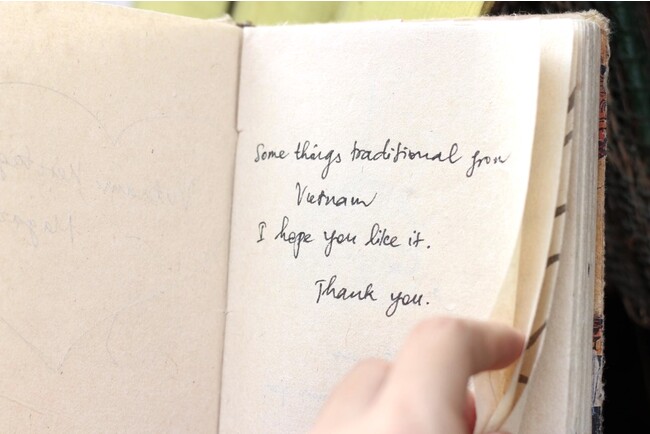 Some things traditional from
Vietnam
I hope you like it.
Thank you.